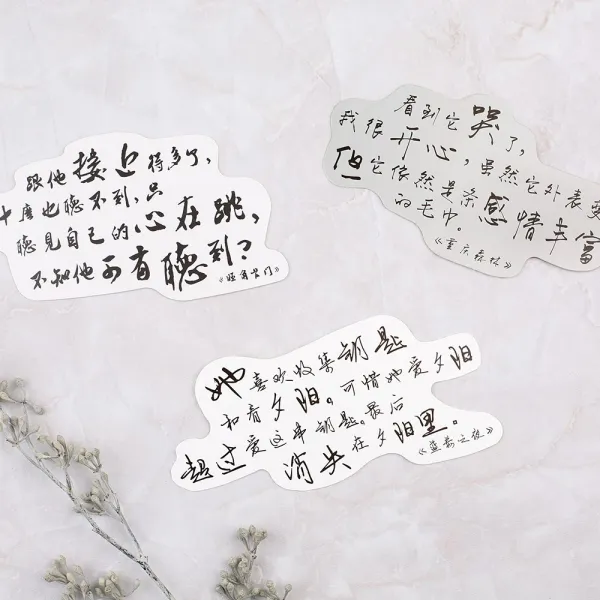 跟他接近得多了，
什麼也聽不到，只
聽見自己的心在跳，
不知他可有聽到？
《旺角卡门》
看到它哭了，
我很开心，虽然它外表变
但它依然是条感情丰富
的毛巾。
《重庆森林》
她喜欢收集钥匙
和看夕阳。可惜她爱夕阳
超过爱这串钥匙。最后
消失在夕阳里。
《蓝莓之夜》